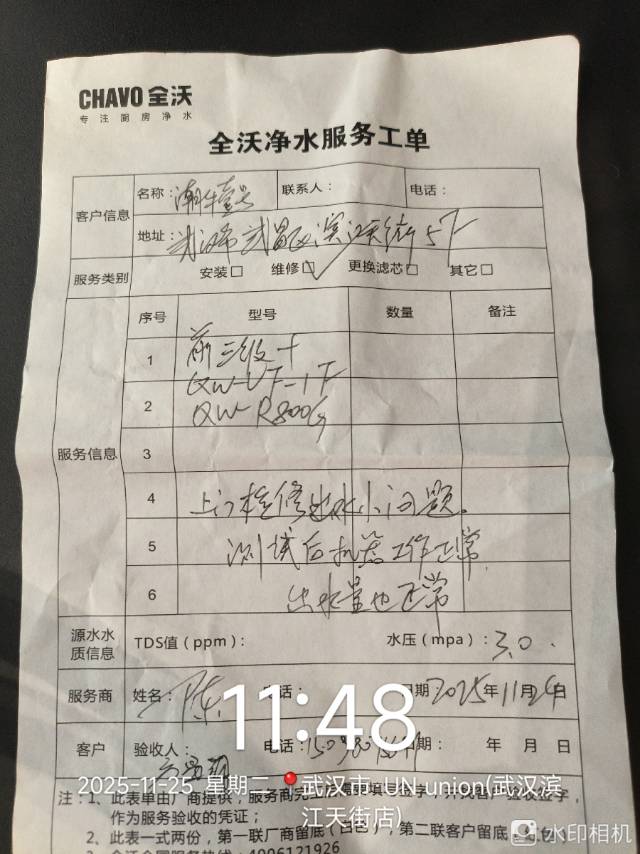 CHAVO 全沃
专注厨房净水
全沃净水服务工单
客户信息
名称：潮牛壹号 联系人： 电话：
地址：武汉市武昌区滨江天街5F
服务类别 安装□ 维修□✓ 更换滤芯□ 其它□
服务信息
序号 型号 数量 备注
1 前三级+
QW-UF-1F
2 QW-R800G
3
4 上门检修出水小问题。
5 测试后机器工作正常
6 出水量也正常
源水水质信息 TDS值（ppm）： 水压（mpa）：3.0
服务商 姓名：陈 电话： 日期 2025年11月24日
客户 验收人： 电话： 日期： 年 月 日
11:48
2025-11-25 星期二 武汉市·UN union(武汉滨江天街店)
注：1、此表单由厂商提供，服务商完
作为服务验收的凭证；
2、此表一式两份，第一联厂商留底（白色），第二联客户留底
4006121926
水印相机